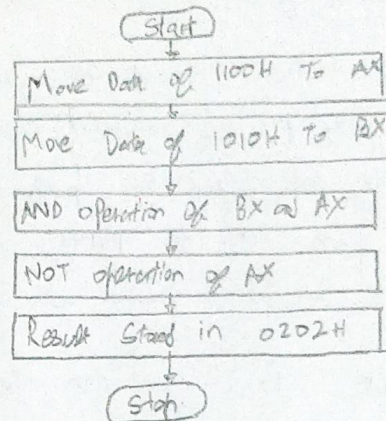 Start
Move Data of 1100H To AX
Move Data of 1010H To BX
AND operation of BX on AX
NOT operation of AX
Result Stored in 0202H
Stop